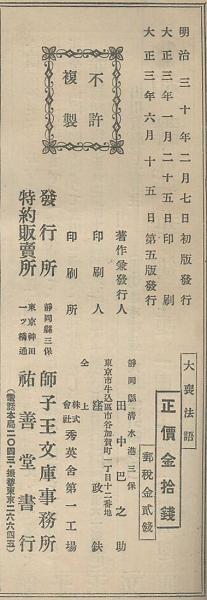 大喪法語
正價金拾錢
郵税金貳錢
明治三十年二月七日初版發行
大正三年一月二十五日印刷
大正三年六月十五日第五版發行
不許
複製
靜岡縣清水港三保
著作兼發行人 田中巴之助
東京市牛込區市谷加賀町一丁目十二番地
印刷人 窪政鈇
仝上
印刷所 株式會社 秀英舍第一工場
靜岡縣三保
發行所 師子王文庫事務所
東京神田一ツ橋通
特約販賣所 祐善堂書行
(電話本局二〇四三・振替東京二六六四五)